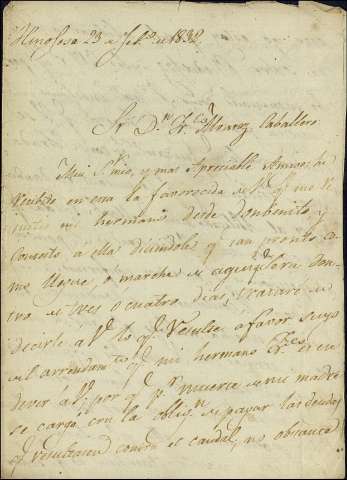 Hinojosa 23 de Feb.o de 1832
Sr Dn Fr.co Alvarez Caballero
Mui Sr mio, y mas Apreciable Amigo: he
recibido en esta la favorecida de Vd. q.e me re
mite mi hermano desde Donbenito y
contesto a ella diciendole q.e tan pronto co
me llegue, o marche de aqui q.e sera den
tro de tres o cuatro dias, tratare de
decirle a Vd. lo q.e resulte a favor suyo
del arrendam.to q.e mi hermano Fr.co es en
dever a Vd. por q.e p.r muerte de mi madre
se cargó con la oblig.n de pagar las deudas
q.e resultasen contra el caudal, no obstante